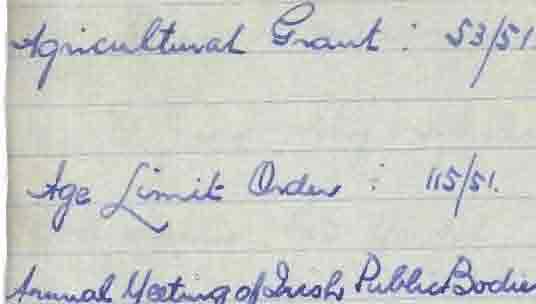 Agricultural Grant : 53/51
Age Limit Order : 115/51.
Annual Meeting of Irish Public Bodie